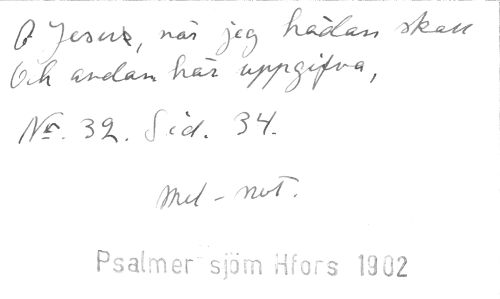 O Jesus, när jag hädan skall
Och andan här uppgifva,
No. 32. Sid. 34.
Mel-not.
Psalmer sjöm Hfors 1902